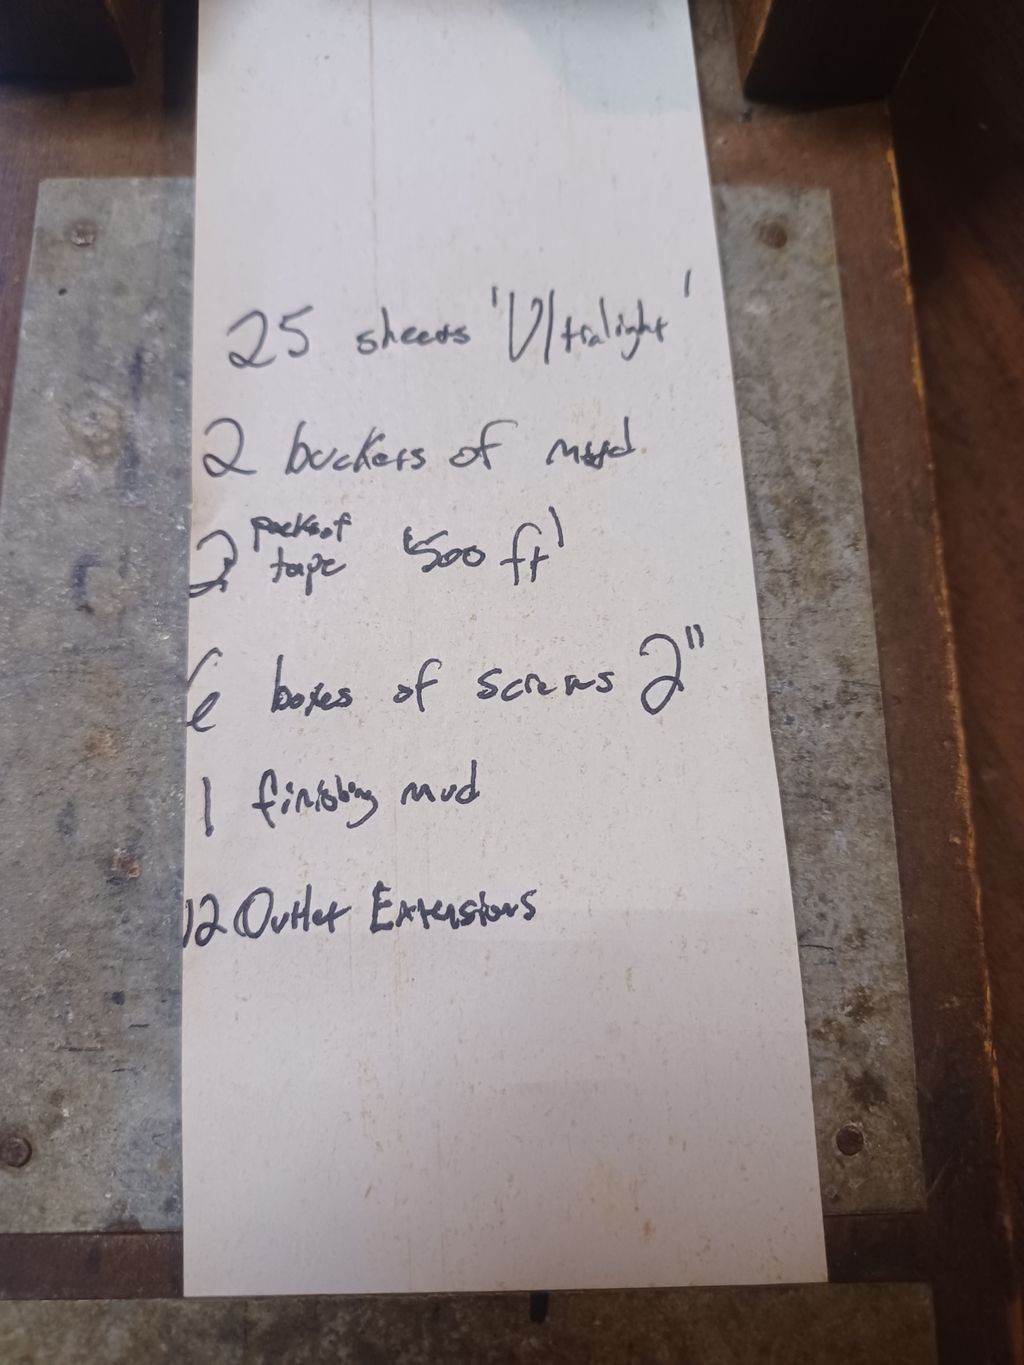 25 sheets 'Ultralight'
2 buckets of mud
2 packs of tape '500 ft'
6 boxes of screws 2"
1 finishing mud
12 Outlet Extensions